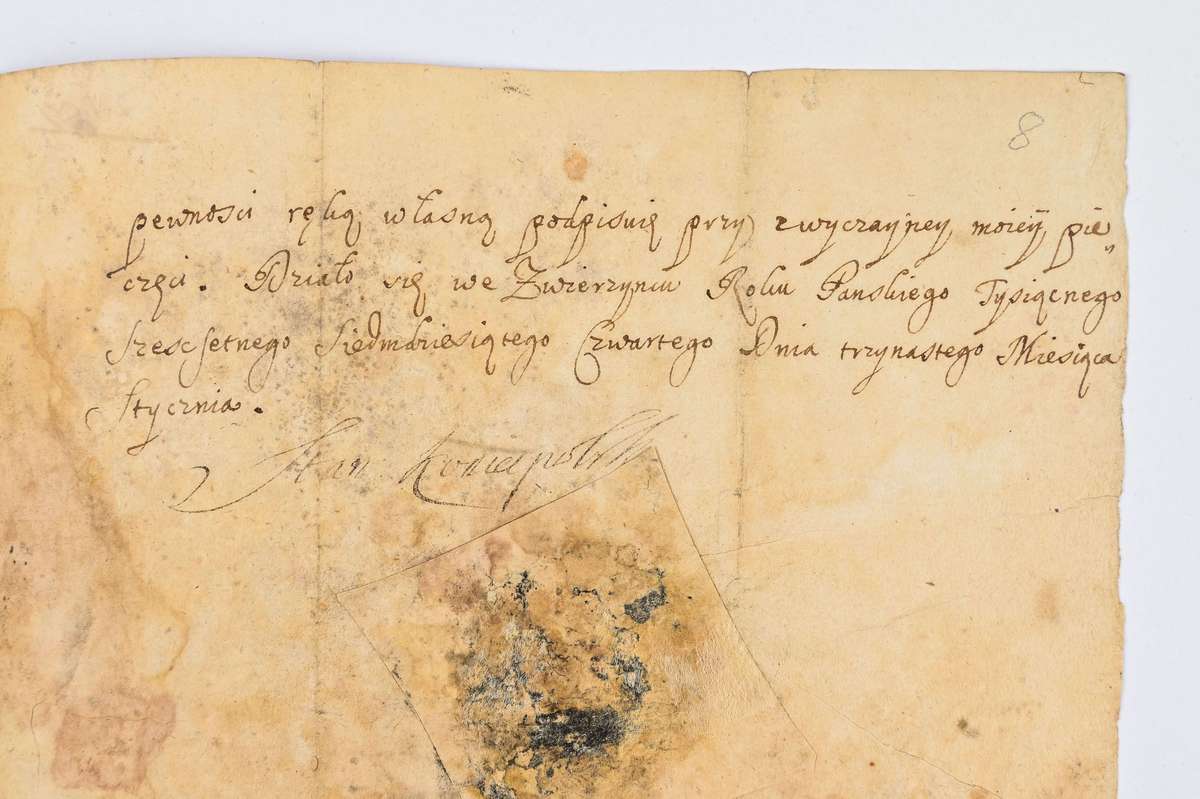 8
pewnosci ręką własną podpisuię przy zwyczayney moiey pie„
częci. Działo się we Zwierzyncu Roku Panskiego Tysiącnego
Szescsetnego Siedmdziesiątego Czwartego Dnia trzynastego Miesiąca
Stycznia.
Stan Koniecpolski